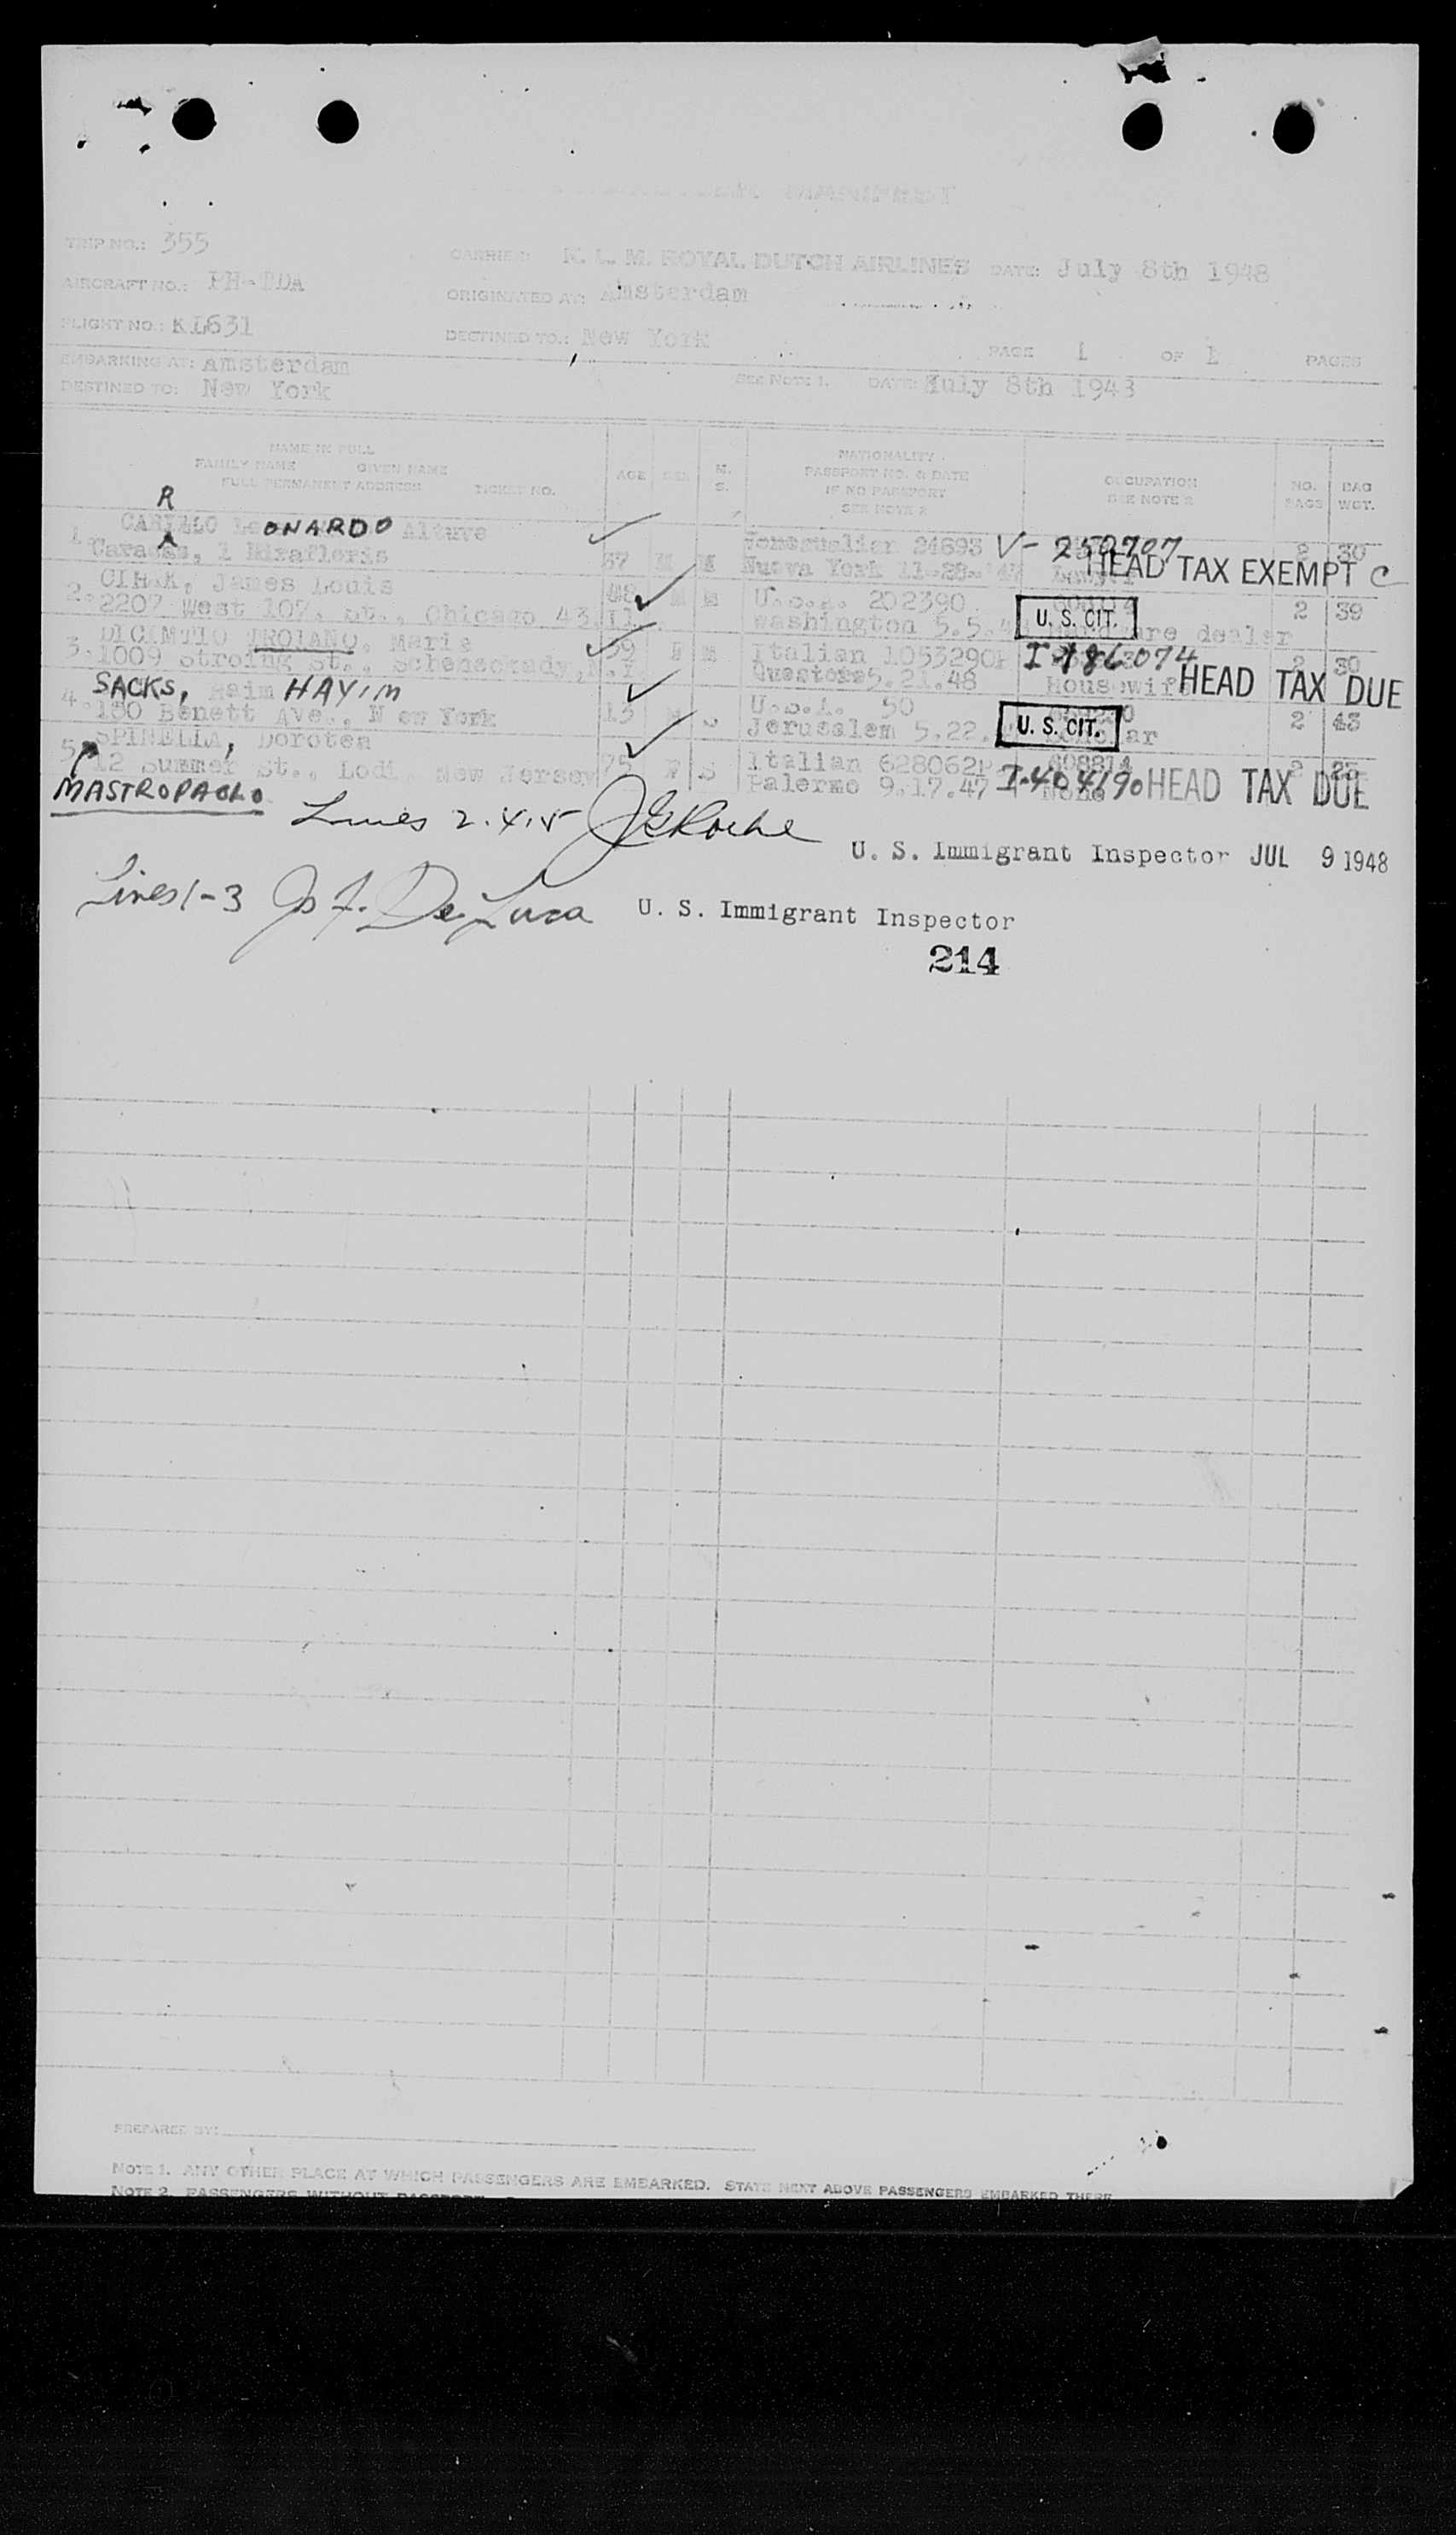 MANIFEST
TRIP NO.: 355
CARRIER: K. L. M. ROYAL DUTCH AIRLINES DATE: July 8th 1948
AIRCRAFT NO.: PH-TDA
ORIGINATED AT: Amsterdam
FLIGHT NO.: KL631
DESTINED TO.: New York
PAGE 1 OF 1 PAGES
EMBARKING AT: Amsterdam
SEE NOTE 1. DATE: July 8th 1948
DESTINED TO: New York
NAME IN FULL
FAMILY NAME GIVEN NAME
FULL PERMANENT ADDRESS TICKET NO.
AGE SEX M. S.
NATIONALITY
PASSPORT NO. & DATE
IF NO PASSPORT
SEE NOTE 2
OCCUPATION
SEE NOTE 2
NO. BAGS
BAG WGT.
R
1. ONARDO Alture 24693 V-250707 2 30
Caracas, 57 M M Nueva York HEAD TAX EXEMPT C
2. James Louis 48 M M U.S.A. 202390 U. S. CIT. 2 39
2207 West 107. St., Chicago 43. Ill. Washington 5.5. dealer
3. TROIANO, Maria 59 M Italian I-186074 30
1009 St., Schenectady, N.Y 5.21.48 Housewife HEAD TAX DUE
4. SACKS, Haim HAYIM 13 M S U.S.A. 50 U. S. CIT. 2 43
150 Benett Ave., New York Jerusalem 5.22.
5. SPINELLA, Dorotea 75 F S Italian 628062P 608814
12 Summer St., Lodi, New Jersey Palermo 9.17.47 I-404190 None HEAD TAX DUE
MASTROPAOLO
Lines 2.4.5 JGRoche
U. S. Immigrant Inspector JUL 9 1948
Lines 1-3 De Luca U. S. Immigrant Inspector
214
PREPARED BY:
NOTE 1. ANY OTHER PLACE AT WHICH PASSENGERS ARE EMBARKED. STATE NEXT ABOVE PASSENGERS EMBARKED THERE
NOTE 2. PASSENGERS WITHOUT PASSPORT